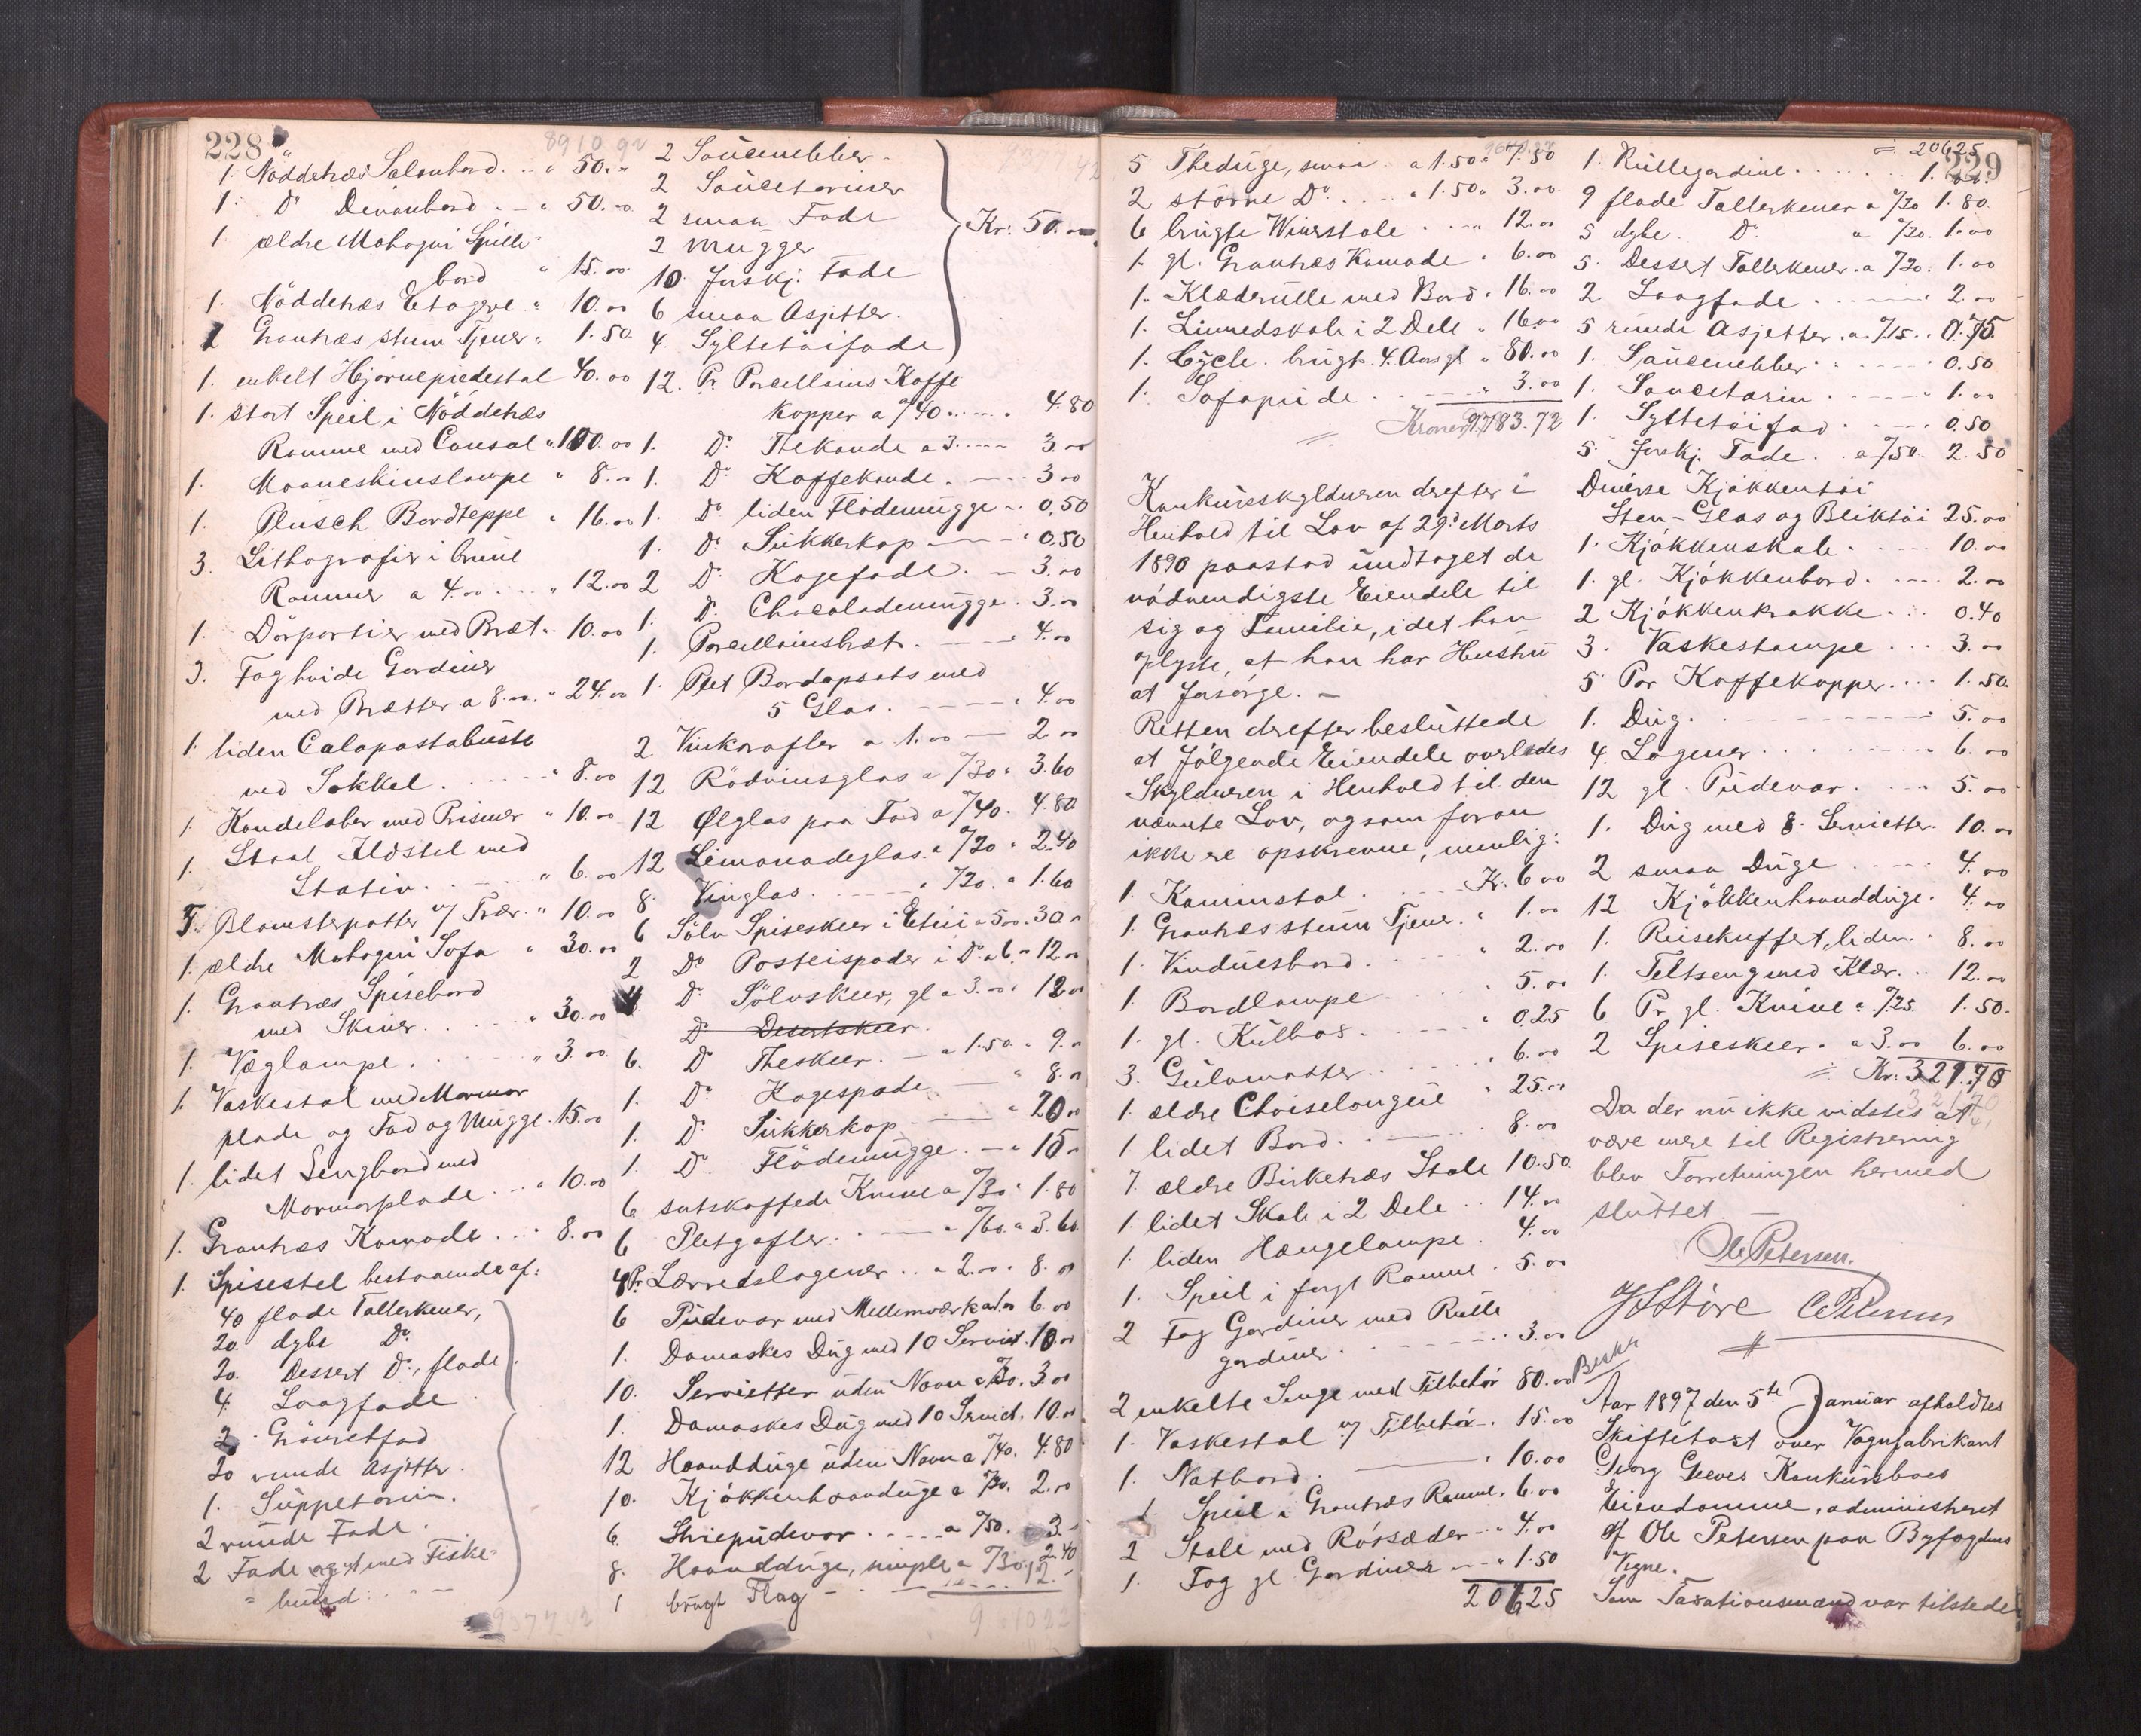 228
8910.92
1. Nöddetræs Salonbord. " 50."
1. Do Divanbord. " 50.00
1. ældre Mahogni Spille-
bord " 15.00
1. Nöddetræs Etagere " 10.00
1 Grantræs stum Tjener " 1.50
1. enkelt Hjørnepiedestal 40.00
1. stort Speil i Nöddetræs
Ramme med Consol " 100.00
1. Maaneskinslampe " 8."
1. Plusch Bordteppe " 16.00
3. Lithografier i brune
Rammer a 4.00 " 12.00
1. Dörportier med Bræt " 10.00
3. Fag hvide Gardiner
med Brætter a 8.00 " 24.00
1. liden Calapastabuste
med Sokkel. " 8.00
1. Kandelaber med Prismer " 10.00
1. Staal Ildstel med
Stativ. " 6.00
5. Blomsterpotter m/ Trær. " 10.00
1. ældre Mahogni Sofa " 30.00
1. Grantræs Spisebord
med Skiver. " 30.00
1. Væglampe. " 3.00
1. Vaskestol med Marmor
plade og Fad og Mugge. 15.00
1. lidet Sengbord med
Marmorplade " 10.00
1. Grantræs Komode. " 8.00
1. Spisestel bestaaende af:
40 flade Tallerkener,
20. dybe Do
20. Dessert Do, flade
4. Laagfade
2. Grönretfad
20 runde Asjetter.
1. Suppeterin.
2 runde Fade.
2 Fade med Fiske-
bund.
2 Saucenebber
2 Sauceteriner
2 smaa Fade
2 Mugger
10 forskj. Fade
6 smaa Asjetter.
4. Syltetöifade
Kr. 50.00
12. Pr. Porcellains Kaffe
kopper a "/40 4.80
1. Do Thekande a 3. 3.00
1. Do Kaffekande. 3.00
1. Do liden Flödemugge 0,50
1. Do Sukkerkop 0.50
2 Do Kagefade. 3.00
1. Do Chocolademugge. 3.00
1. Porcellainsbræt. 4.00
1. Plet Bordopsats med
5 Glas. 4.00
2 Vinkarafler a 1.00 2.00
12 Rödvinsglas a "/30 3.60
12 Ølglas paa Fod a "/40. 4.80
12 Limonadeglas. a "/20 2.40
8. Vinglas. "/20. 1.60
6 Sölv Spiseskeer i Etui a 5.00. 30."
2 Do Posteispader i Do a 6. 12.00
4 Do Sölvskeer, gl a 3.00 12.00
Do Desertskeer.
6. Do Theskeer. a 1.50. 9."
1. Do Kagespade 8."
1. Do Sukkerkop 20"
1. Do Flödemugge. 15"
6 sortskaftede Knive a "/30 1.80
6 Pletgafler. a "/60. 3.60
4 Pr. Lærredslagener. a 2.00. 8.00
6 Pudevar med Mellemværk 6.00
1. Damaskes Dug med 10 Serviet. 10.00
10. Servietter uden Navn a "/30. 3.00
1. Damaskes Dug med 10 Serviet. 10.00
12 Haandduge uden Navn a "/40. 4.80
10. Kjökkenhaandduge a "/20. 2.00
6. Striepudevar. a "/50. 3.
8. Haandduge, simple a "/30. 2.40
1 brugt Flag 12.
229
5 Theduge, smaa a 1.50. 7.50
2 större Do. a 1.50. 3.00
6 brugte Wienerstole. 12.00
1. gl. Grantræs Komode. 6.00
1. Klæderulle med Bord. 16.00
1. Linnedskab i 2 Dele. 16.00
1. Cycle. brugt. 4. Aars gl. 80.00
1. Sofapude. 3.00
Kroner 9783.72
Konkursskyldneren derefter i
Henhold til Lov af 29d Marts
1890 paastod undtaget de
nödvendigste Eiendele til
sig og Familie, idet han
oplyste, at han har Hustru
at forsörge. —
Retten derefter besluttede
at fölgende Eiendele overlades
Skyldneren i Henhold til den
nævnte Lov, og som foran
ikke er opskrevne, nemlig:
1. Kaminstol. Kr. 6.00
1. Grantræs stum Tjener. 1.00
1. Vinduesbord. 2.00
1 Bordlampe 5.00
1. gl. Kulbox. 0.25
3. Gulvmatter. 6.00
1. ældre Chaiselongue 25.00
1 lidet Bord. 8.00
7. ældre Birketræs Stole 10.50
1. lidet Skab i 2 Dele. 14.00
1. liden Hængelampe. 4.00
1. Speil i forgt Ramme. 5.00
2 Fag Gardiner med Rulle
gardiner. 3.00
2 enkelte Senge med Tilbehör 80.00
1. Vaskestol m/ Tilbehör. 15.00
1. Natbord. 10.00
1. Speil i Grantræs Ramme. 6.00
2 Stole med Rörsæder 4.00
1. Fag gl. Gardiner 1.50
20625
= 20625
1. Rullegardine. 1.00
9 flade Tallerkener a "/20 1.80
5 dybe Do a "/20. 1.00
5. Dessert Tallerkener. a "/20. 1.00
2 Laagfade 2.00
5 runde Asjetter. a "/15. 0.75.
1. Saucenebbe. 0.50
1. Sauceterin. 1.00
1. Syltetöifad. 0.50
5. forskj. Fade. a "/50 2.50
Diverse Kjökkentöi
Sten-Glas og Bliktöi 25.00
1. Kjökkenskab. 10.00
1. gl. Kjökkenbord. 2.00
2 Kjökkenkrakke. 0.40
3. Vaskestampe. 3.00
5 Par Kaffekopper. 1.50
1. Dug. 5.00
4. Lagener. 6.00
12 gl. Pudevar. 5.00
1. Dug med 8. Servietter. 10.00
2 smaa Duge 4.00
12 Kjökkenhaandduge. 4.00
1. Reisekuffert, liden. 8.00
1. Feltseng med Klær. 12.00
6 Pr. gl. Knive a "/25 1.50.
2 Spiseskeer. a 3.00 6.00
= Kr. 321.70
Da der nu ikke vidstes at
være mere til Registrering
blev Forretningen hermed
sluttet. —
Ole Petersen.
Aar 1897 den 5te Januar afholdtes
Skiftetaxt over Vognfabrikant
Georg Greves Konkursboes
Eiendomme, administreret
af Ole Petersen paa Byfogdens
Vegne.
Som Taxationsmænd var tilstede